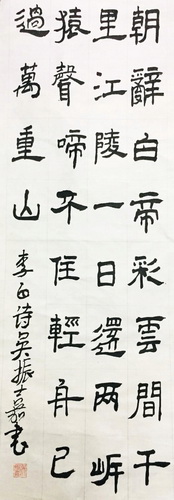 朝辭白帝彩雲間千
里江陵一日還两岍
猿聲啼不住輕舟已
過萬重山
李白诗吴振嘉书